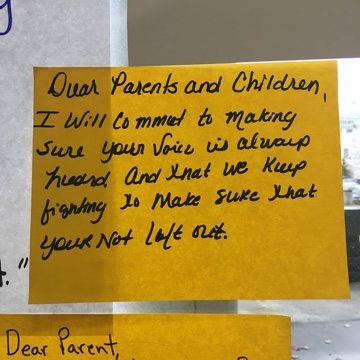 Dear Parents and Children,
I Will Commut to making
sure your Voice is always
heard. And that we keep
fighting to make sure that
your Not left out.
."
Dear Parent,